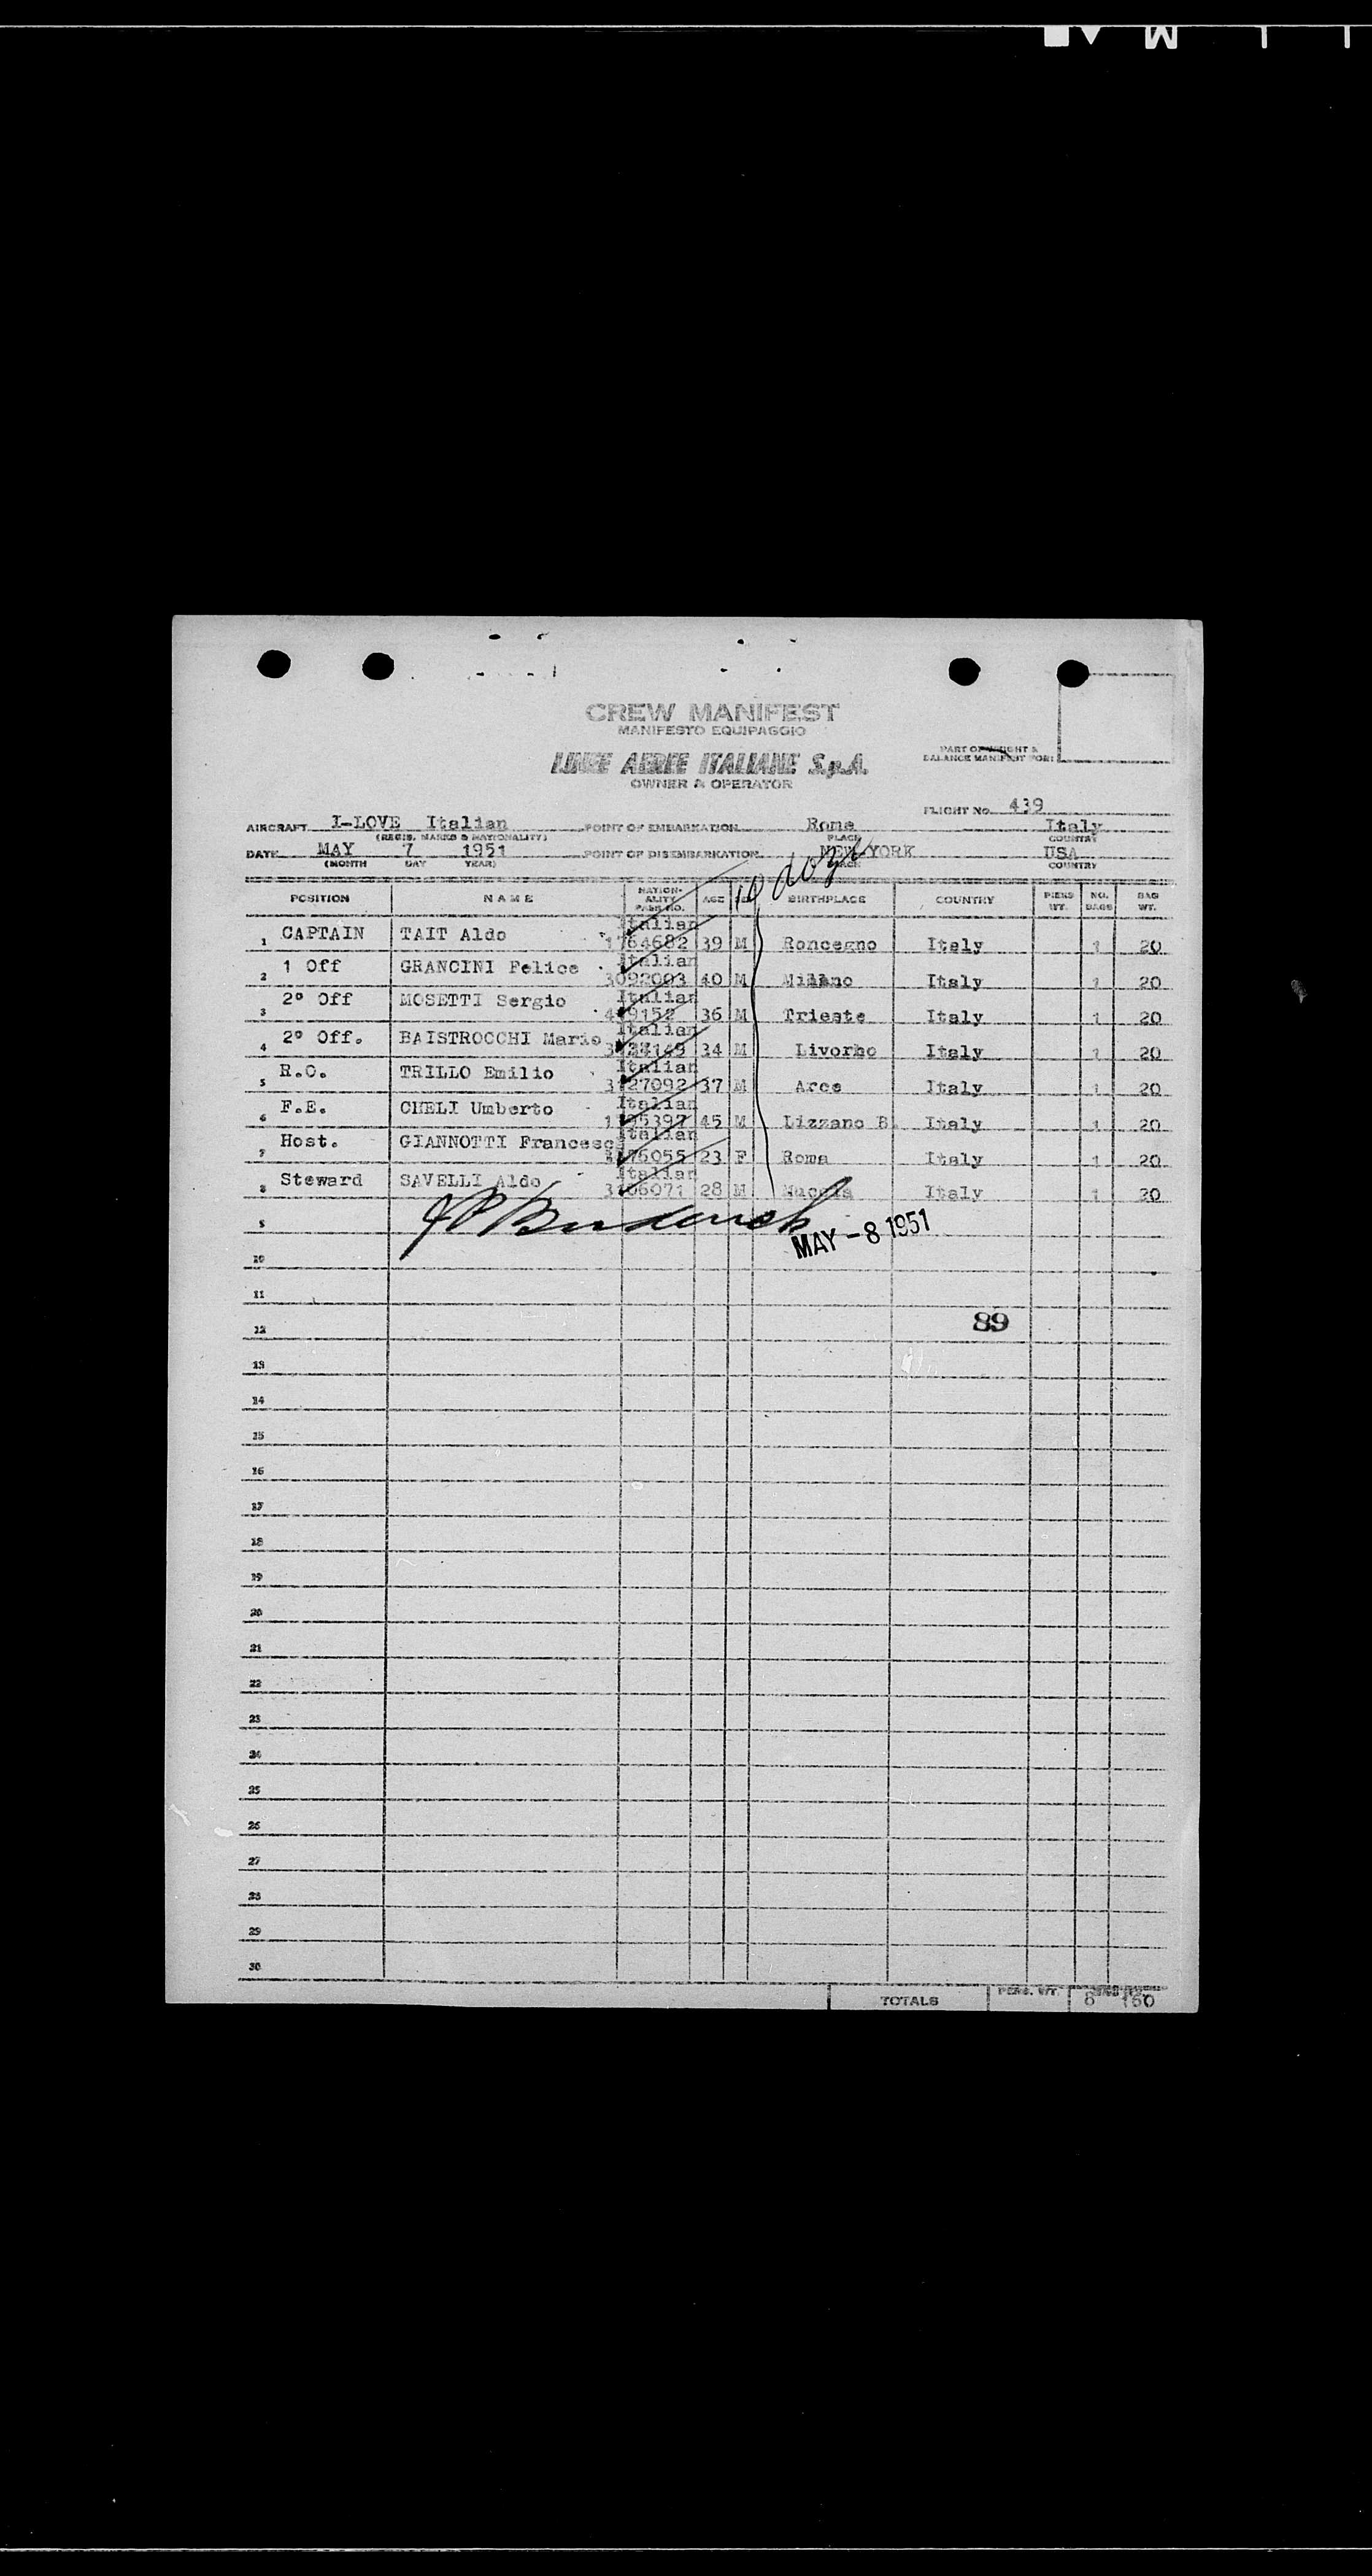 CREW MANIFEST
MANIFESTO EQUIPAGGIO
LINEE AEREE ITALIANE S.p.A.
OWNER & OPERATOR
PART OF WEIGHT &
BALANCE MANIFEST FOR:
FLIGHT No. 439
AIRCRAFT I-LOVE Italian POINT OF EMBARKATION Roma Italy
(REGIS. MARKS & NATIONALITY) PLACE COUNTRY
DATE MAY 7 1951 POINT OF DISEMBARKATION NEW YORK USA
(MONTH DAY YEAR) PLACE COUNTRY
POSITION NAME NATION-ALITY PASS NO. AGE BIRTHPLACE COUNTRY PERS WT. NO. BAGS BAG WT.
1 CAPTAIN TAIT Aldo Italian 1764682 39 M Roncegno Italy 1 20
2 1 Off GRANCINI Felice Italian 3092003 40 M Milano Italy 1 20
3 2° Off MOSETTI Sergio Italian 36 M Trieste Italy 1 20
4 2° Off. BAISTROCCHI Mario Italian 34 M Livorno Italy 1 20
5 R.O. TRILLO Emilio Italian 3127092 37 M Arce Italy 1 20
6 F.E. CHELI Umberto Italian 45 M Lizzano B. Italy 1 20
7 Host. GIANNOTTI Francesc Italian 23 F Roma Italy 1 20
8 Steward SAVELLI Aldo Italian 3106071 28 M Italy 1 20
9
MAY - 8 1951
10
11
12 89
13
14
15
16
17
18
19
20
21
22
23
24
25
26
27
28
29
30
TOTALS PERS. WT. 8 160